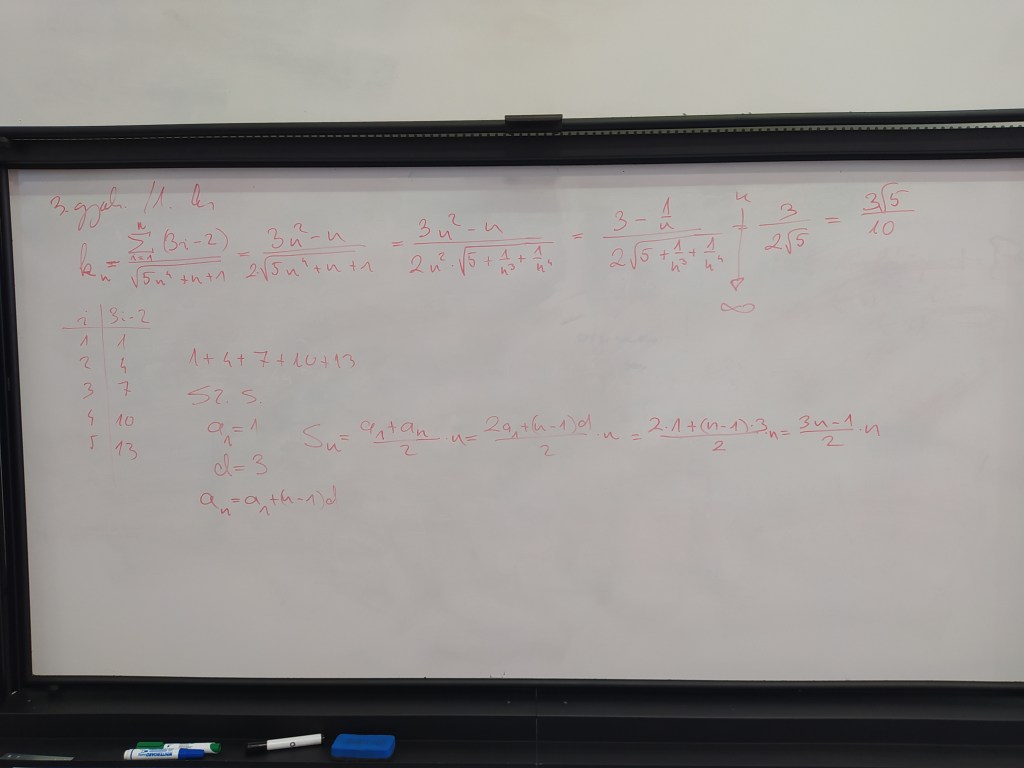 3. gyak. /1. kn
kₙ = \frac{\sum_{i=1}^{n} (3i-2)}{\sqrt{5n⁴+n+1}} = \frac{3n²-n}{2\sqrt{5n⁴+n+1}} = \frac{3n²-n}{2n²·\sqrt{5+\frac{1}{n³}+\frac{1}{n⁴}}} = \frac{3-\frac{1}{n}}{2\sqrt{5+\frac{1}{n³}+\frac{1}{n⁴}}} n ↓ ∞ → \frac{3}{2\sqrt{5}} = \frac{3\sqrt{5}}{10}
i | 3i-2
1 | 1
2 | 4
3 | 7
4 | 10
5 | 13
1+4+7+10+13
SZ. S.
a₁=1
d=3
aₙ=a₁+(n-1)d
Sₙ = \frac{a₁+aₙ}{2}·n = \frac{2a₁+(n-1)d}{2}·n = \frac{2·1+(n-1)·3}{2}n = \frac{3n-1}{2}·n